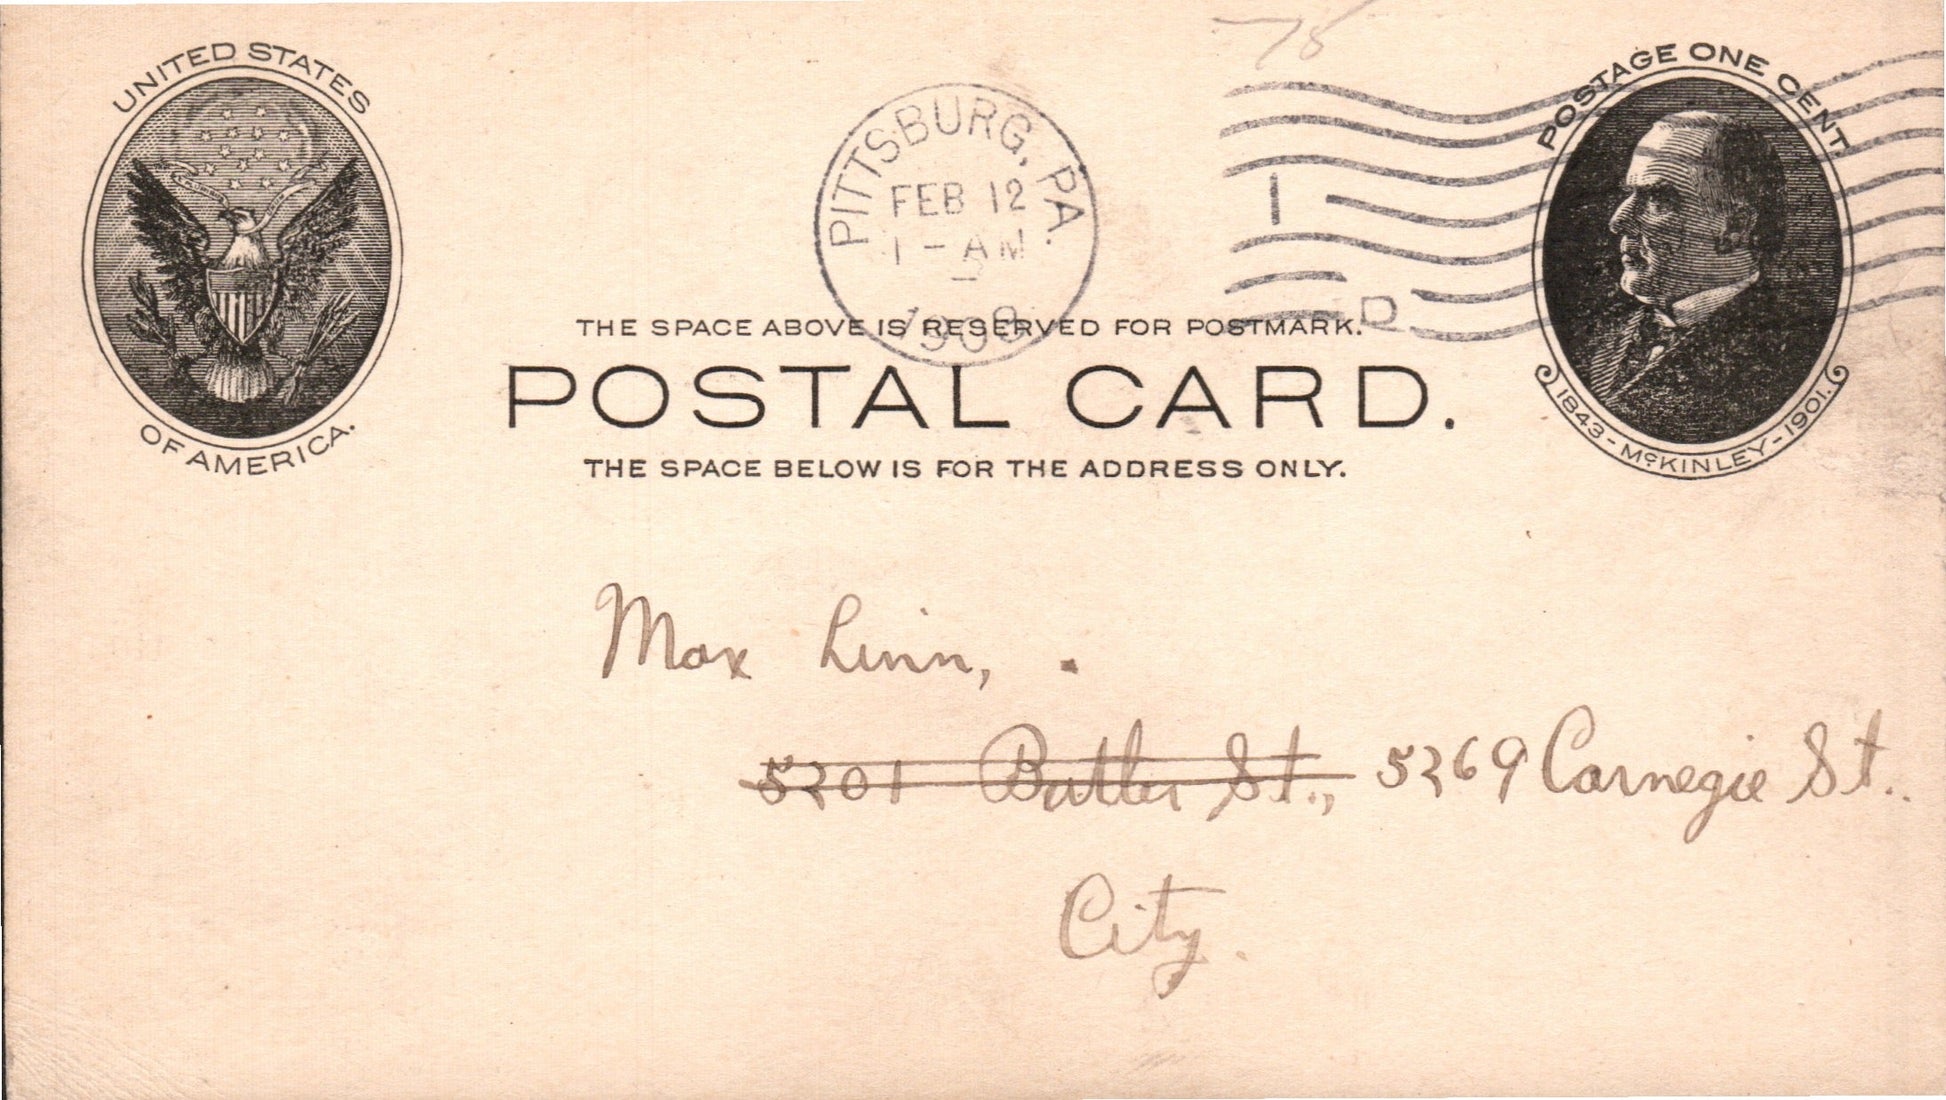 UNITED STATES
OF AMERICA.
PITTSBURG, PA.
FEB 12
1 - AM
1
D
POSTAGE ONE CENT.
1843 - McKINLEY - 1901.
THE SPACE ABOVE IS RESERVED FOR POSTMARK.
POSTAL CARD.
THE SPACE BELOW IS FOR THE ADDRESS ONLY.
Max Linn,
5201 Butler St., 5269 Carnegie St.
City.